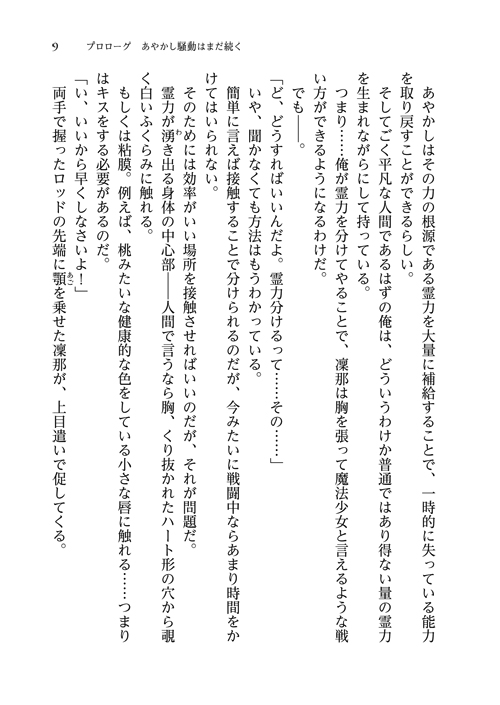 9　プロローグ　あやかし騒動はまだ続く
あやかしはその力の根源である霊力を大量に補給することで、一時的に失っている能力
を取り戻すことができるらしい。
そしてごく平凡な人間であるはずの俺は、どういうわけか普通ではあり得ない量の霊力
を生まれながらにして持っている。
つまり……俺が霊力を分けてやることで、凜那は胸を張って魔法少女と言えるような戦
い方ができるようになるわけだ。
でも――。
「ど、どうすればいいんだよ。霊力分けるって……その……」
いや、聞かなくても方法はもうわかっている。
簡単に言えば接触することで分けられるのだが、今みたいに戦闘中ならあまり時間をか
けてはいられない。
そのためには効率がいい場所を接触させればいいのだが、それが問題だ。
霊力が湧き出る身体の中心部――人間で言うなら胸、くり抜かれたハート形の穴から覗
く白いふくらみに触れる。
もしくは粘膜。例えば、桃みたいな健康的な色をしている小さな唇に触れる……つまり
はキスをする必要があるのだ。
「い、いいから早くしなさいよ！」
両手で握ったロッドの先端に顎を乗せた凜那が、上目遣いで促してくる。
わ
あご